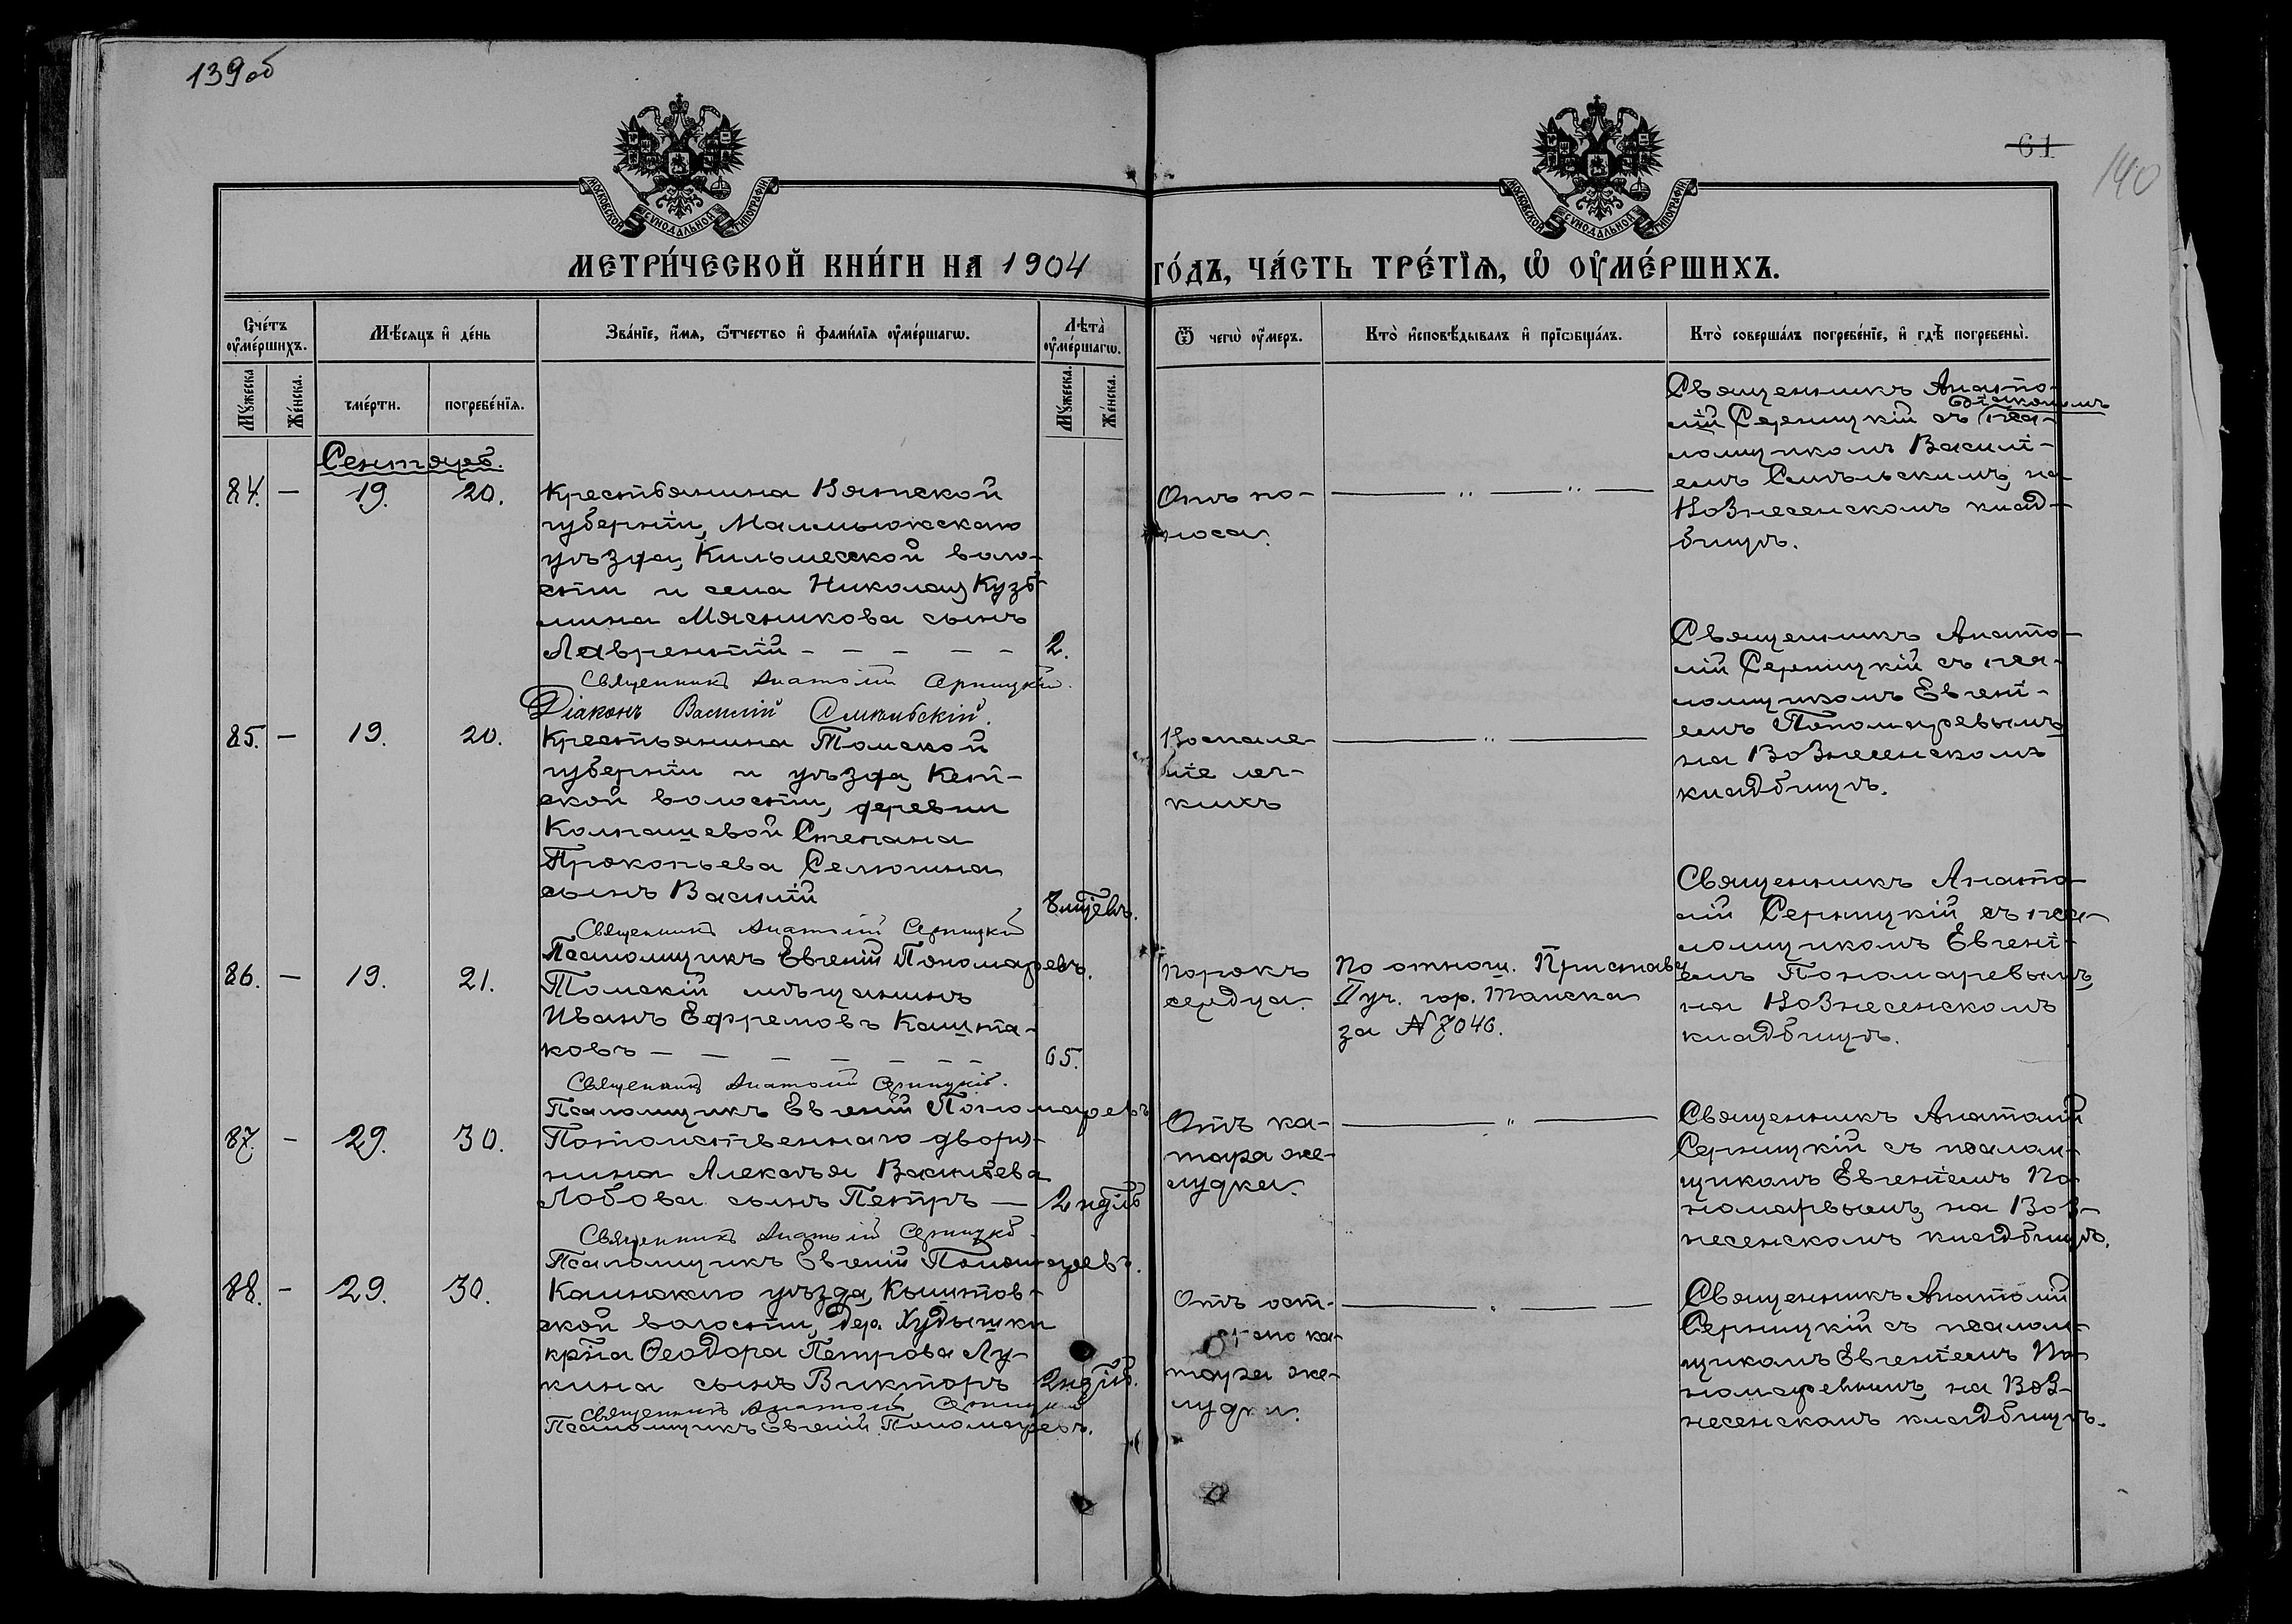 139об
61
140
МОСКОВСКОЙ СѴНОДАЛЬНОЙ ТИПОГРАФІИ
МОСКОВСКОЙ СѴНОДАЛЬНОЙ ТИПОГРАФІИ
МЕТРИ́ЧЕСКОЙ КНИ́ГИ НА 1904
ГО́ДЪ, ЧА́СТЬ ТРЕ́ТІѦ, Ѡ҆ ОУ҆МЕ́РШИХЪ.
Счéтъ оу҆мéршихъ.
Мѣ́сяцъ и҆ дéнь
Звáнїе, и҆́мя, ѻ҆́тчество и҆ фамѝлїя оу҆мéршагѡ.
Лѣ́та оу҆мéршагѡ.
Ѿ чегѡ̀ оу҆́меръ.
Кто̀ и҆сповѣ́дывалъ и҆ прїѡбщáлъ.
Кто̀ совершáлъ погребéнїе, и҆ гдѣ̀ погребены̀.
Мꙋ́жеска
Жéнска.
смéрти.
погребéнїя.
Мꙋ́жеска.
Жéнска.
Сентябр.
84. — 19. 20.
Крестьянина Вятской
губерніи, Малмыжскаго
уѣзда, Кильмезской воло-
сти и села Николая Кузь-
мина Мясникова сынъ
Лаврентій — — — — — 2.
Священникъ Анатолій Серницкій.
Діаконъ Василій Смѣльскій.
Отъ по-
носа.
— „ — „ —
Священникъ Анато-
лій Серницкій съ діакономъ
ломщикомъ Василі-
емъ Смѣльскимъ, на
Вознесенскомъ клад-
бищѣ.
85. — 19. 20.
Крестьянина Томской
губерніи и уѣзда, Кет-
ской волости, деревни
Колпашевой Степана
Прокопьева Селюгина
сынъ Василій
8 мѣсяц.
Священникъ Анатолій Серницкій
Псаломщикъ Евгеній Пономаревъ.
Воспале-
ніе лег-
кихъ
— „ —
Священникъ Анато-
лій Серницкій съ пса-
ломщикомъ Евгені-
емъ Пономаревымъ
на Вознесенскомъ
кладбищѣ.
86. — 19. 21.
Томскій мѣщанинъ
Иванъ Ефремовъ Кашта-
ковъ — — — — — — 65.
Священникъ Анатолій Серницкій.
Псаломщикъ Евгеній Пономаревъ
Порокъ
сердца.
По отнош. Пристава
II уч. гор. Томска
за № 7046.
Священникъ Анато-
лій Серницкій съ пса-
ломщикомъ Евгені-
емъ Пономаревымъ,
на Вознесенскомъ
кладбищѣ.
87. — 29. 30.
Потомственнаго дворя-
нина Алексѣя Васильева
Лобова сынъ Петръ — 2 ндѣль
Священникъ Анатолій Серницкій
Псаломщикъ Евгеній Пономаревъ.
Отъ ка-
тара же-
лудка.
— „ —
Священникъ Анатолій
Серницкій съ псалом-
щикомъ Евгеніемъ По-
номарвымъ, на Воз-
несенскомъ кладбищѣ.
88. — 29. 30.
Каинскаго уѣзда, Кыштов-
ской волости, дер. Худышки
кр̃на Ѳеодора Петрова Лу-
кина сынъ Викторъ 2 ндѣль.
Священникъ Анатолій Серницкій
Псаломщикъ Евгеній Пономаревъ.
Отъ ост-
раго ка-
тара же-
лудка.
— „ — —
Священникъ Анатолій
Серницкій съ псалом-
щикомъ Евгеніемъ По-
номаревымъ, на Воз-
несенскомъ кладбищѣ.